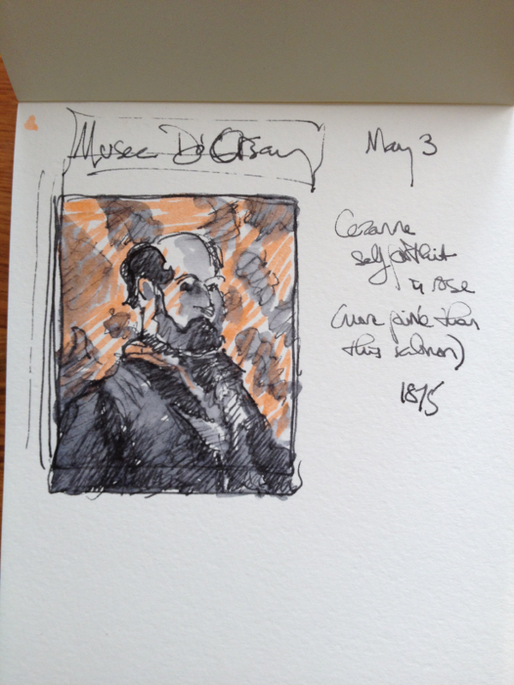 Musee D'Orsay
May 3
Cezanne
self portrait
& rose
(more pink than
this salmon)
1875